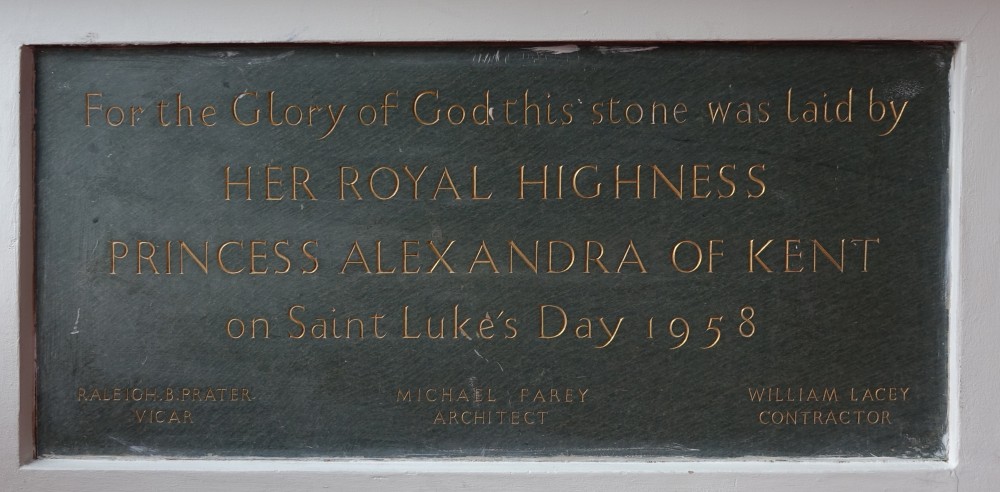 For the Glory of God this stone was laid by
HER ROYAL HIGHNESS
PRINCESS ALEXANDRA OF KENT
on Saint Luke's Day 1958
RALEIGH.B.PRATER. MICHAEL FAREY WILLIAM LACEY
VICAR ARCHITECT CONTRACTOR